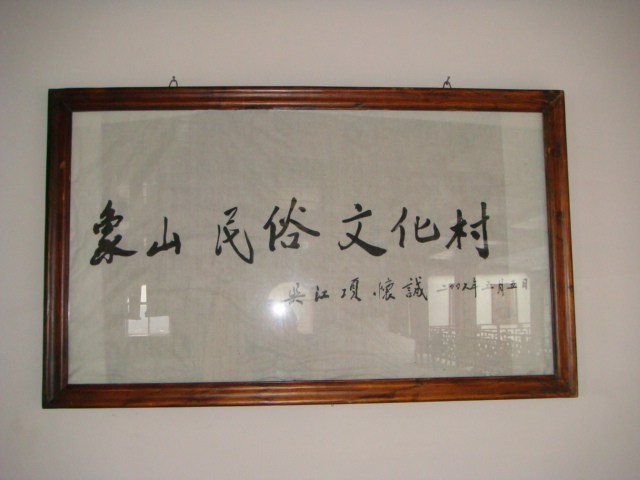 象山民俗文化村
吴江項懷誠 二〇〇九年五月五日